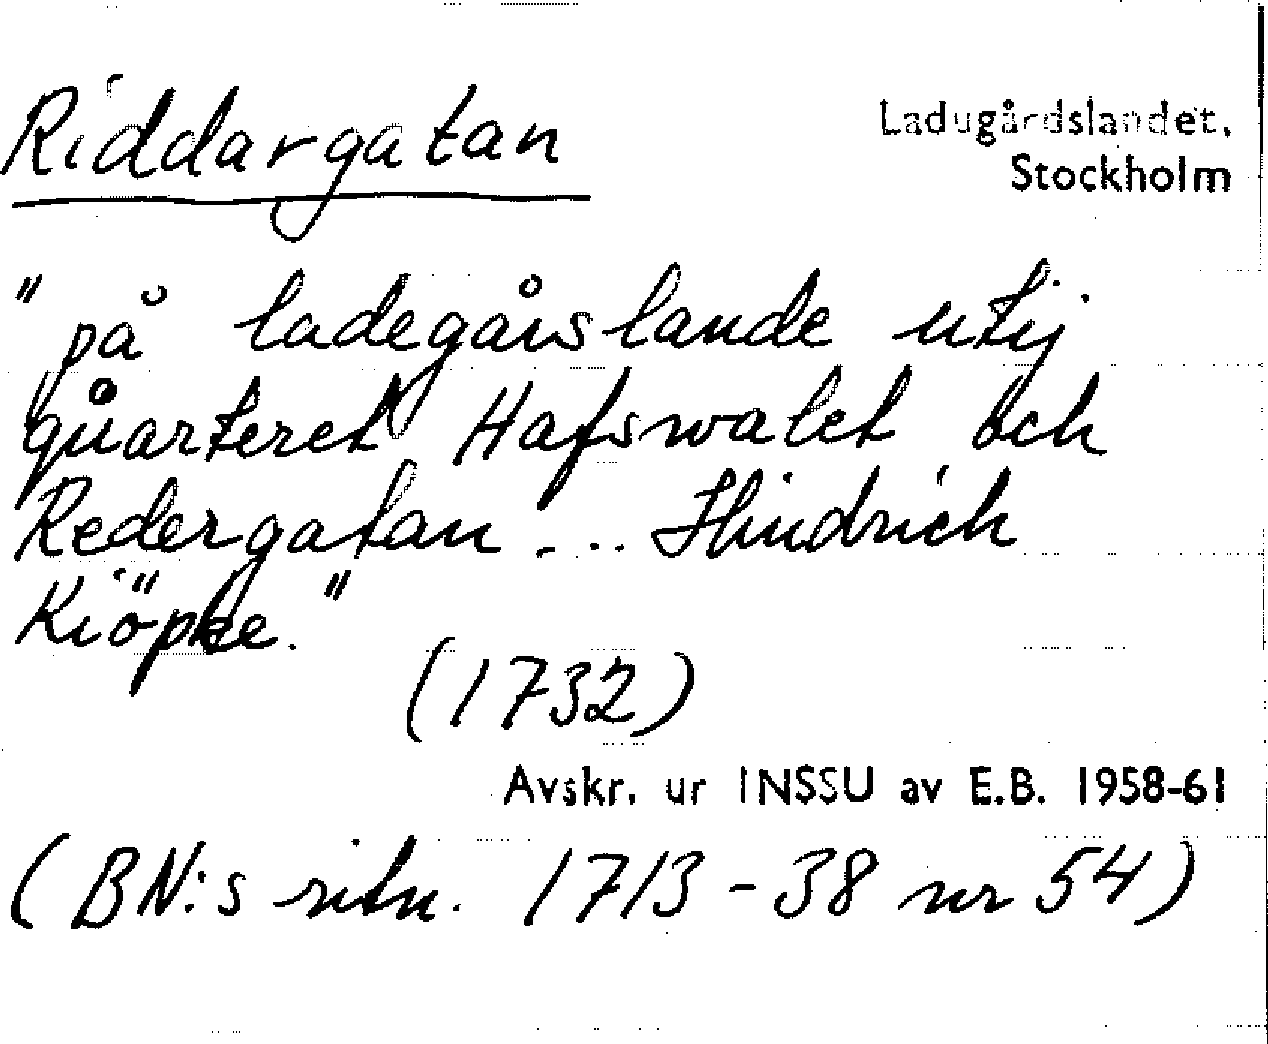 Riddargatan
Ladugårdslandet.
Stockholm
"på ladegårslande utij
qůarteret Hafswalet och
Redergatan ... Hindrich
Kiöpke."
(1732)
Avskr. ur INSSU av E.B. 1958-61
(BN:s ritn. 1713-38 nr 54)